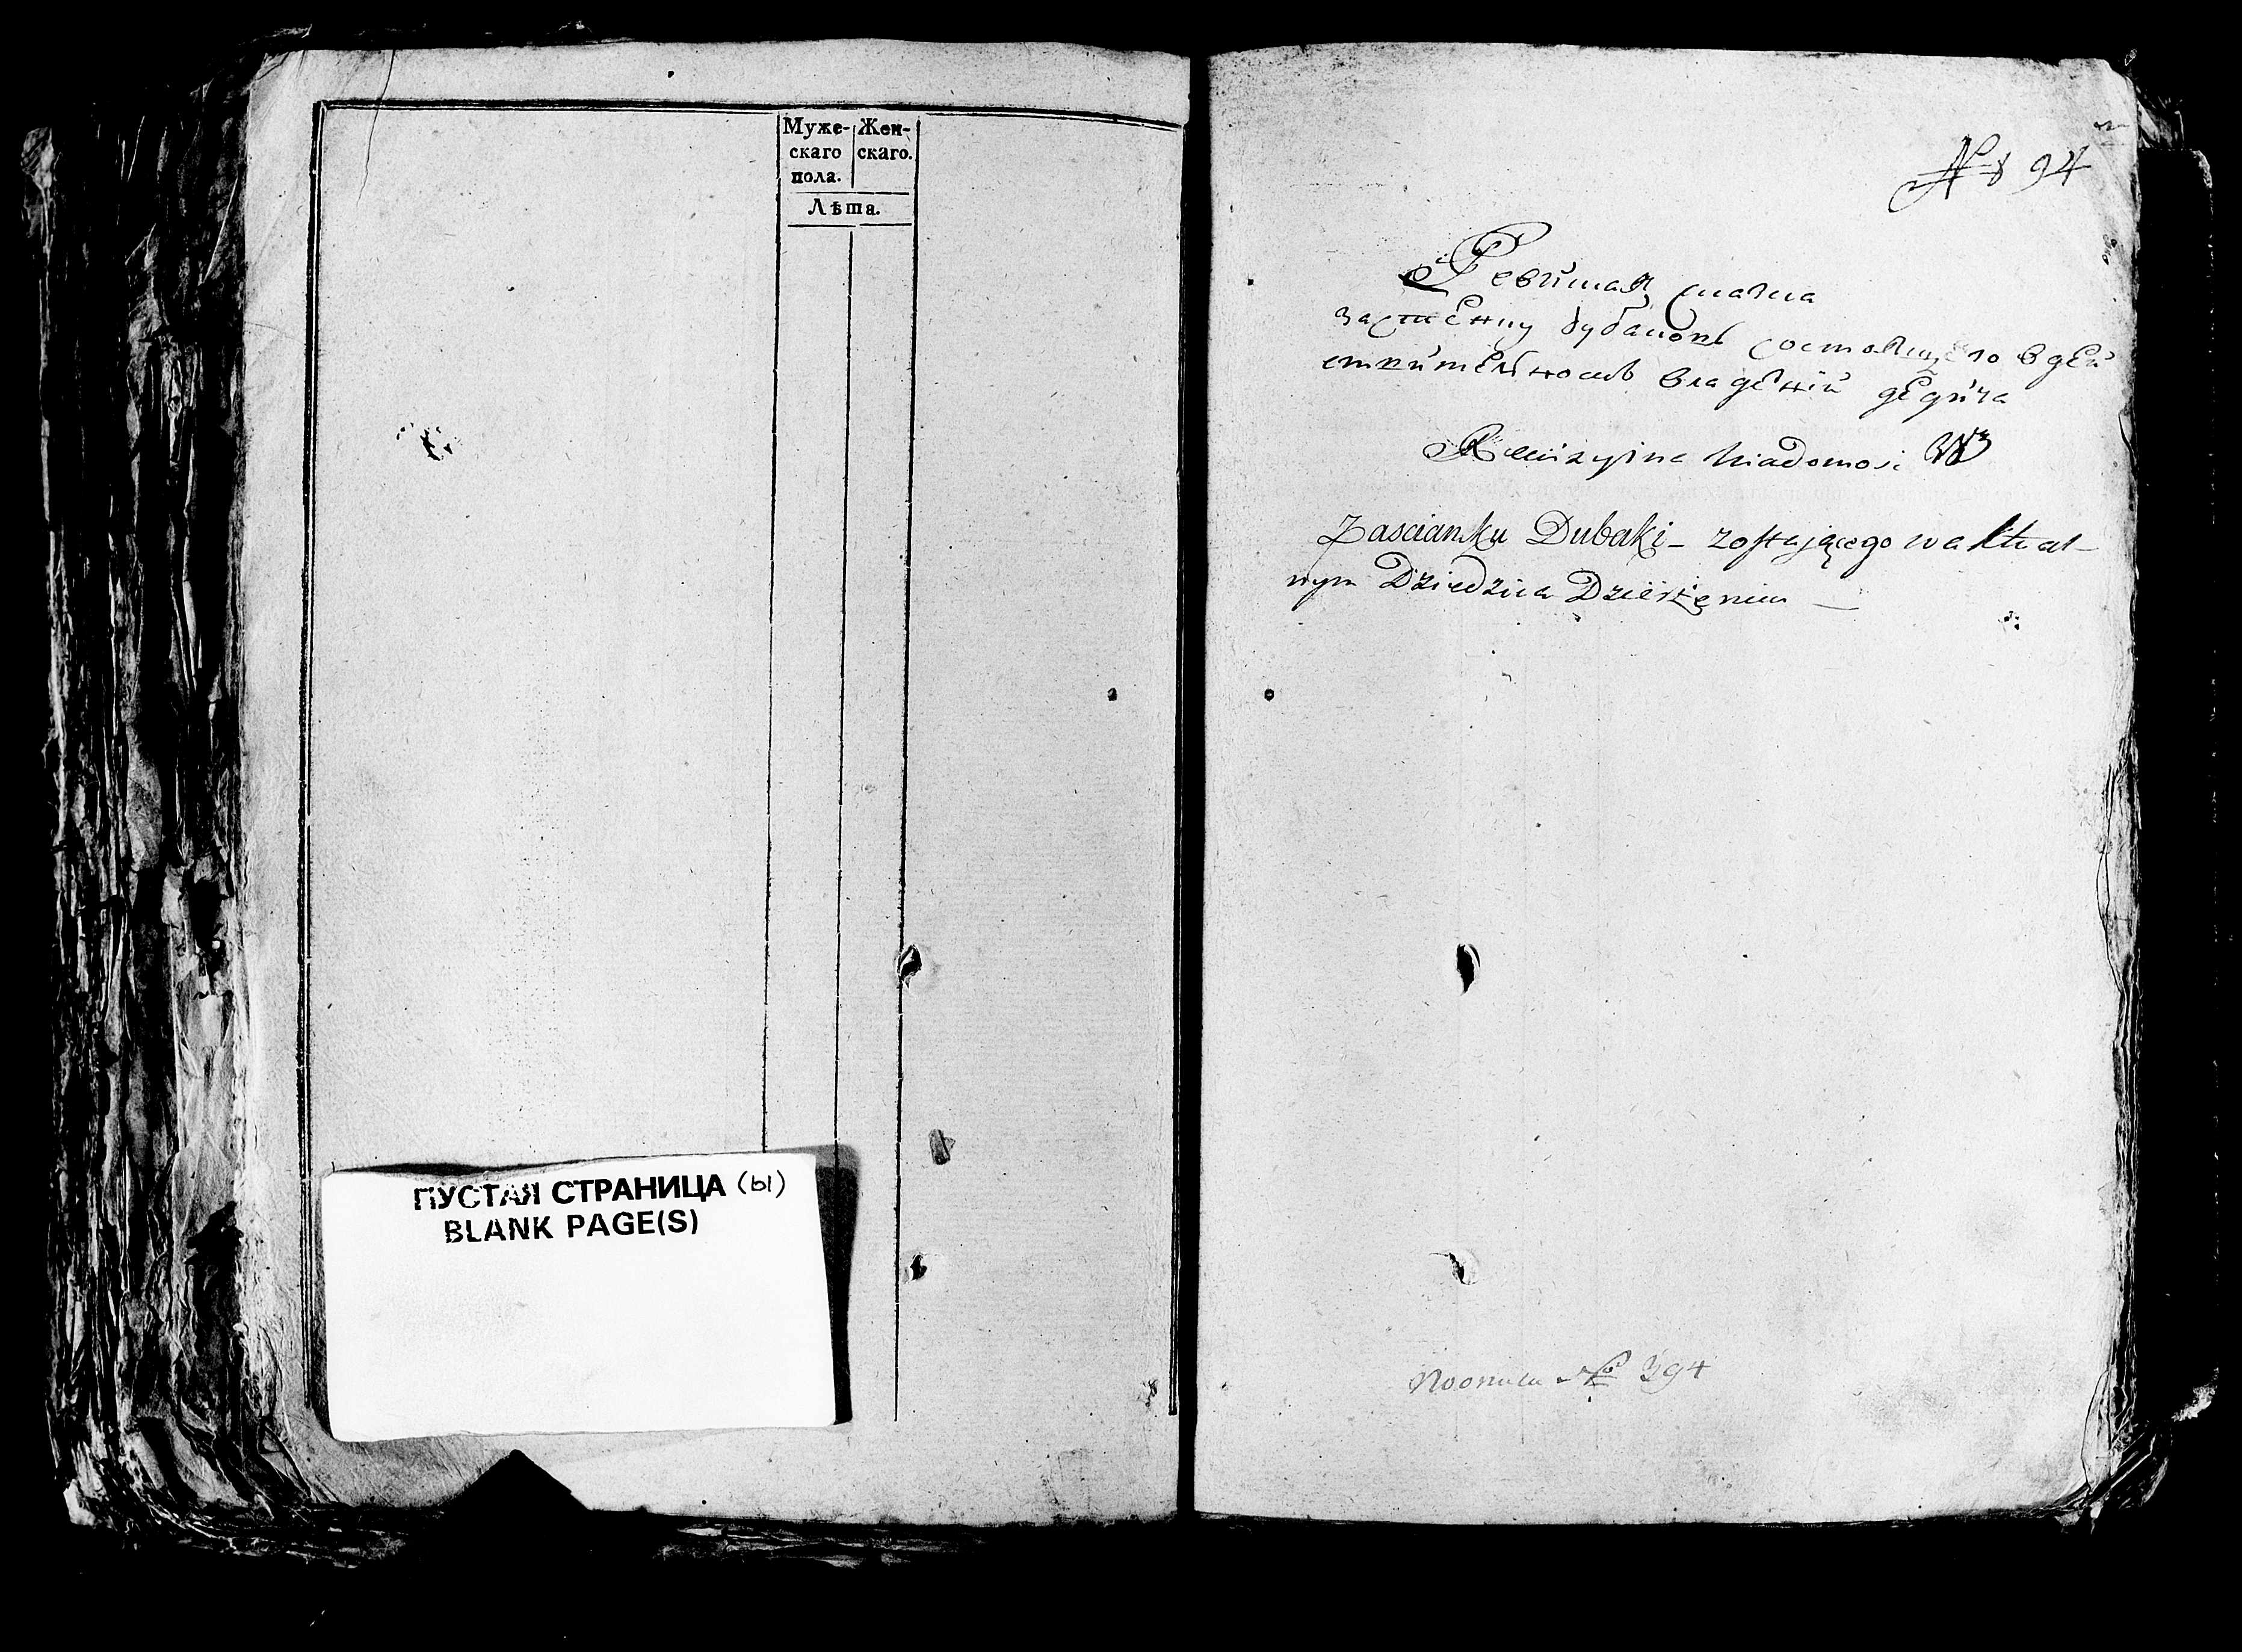 Муже- Жен-
скаго скаго.
пола.
Лѣта.
ПУСТАЯ СТРАНИЦА (ы)
BLANK PAGE(S)
№ 94
Ревизкая сказка
застенку дубаковъ состоящего в дей
ствительномъ владенiи дедича
Rewizyina Wiadomosc
Zascianku Dubaki - zostającego w aktual-
nym Dziedzica Dzierżeniu —
По описи № 394